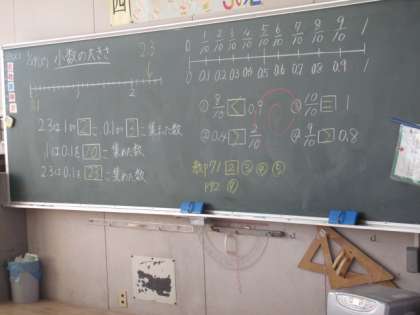 小数の大きさ
2.3
0 1 2
2.3は1が2こ、0.1が3こ集また数
1は0.1を10こ集めた数
2.3は0.1を23こ集めた数
0 1/10 2/10 3/10 4/10 5/10 6/10 7/10 8/10 9/10 1
0 0.1 0.2 0.3 0.4 0.5 0.6 0.7 0.8 0.9 1
① 8/10 < 0.9
③ 10/10 = 1
② 0.4 > 2/10
④ 9/10 > 0.8
教p71 2 3 4 5